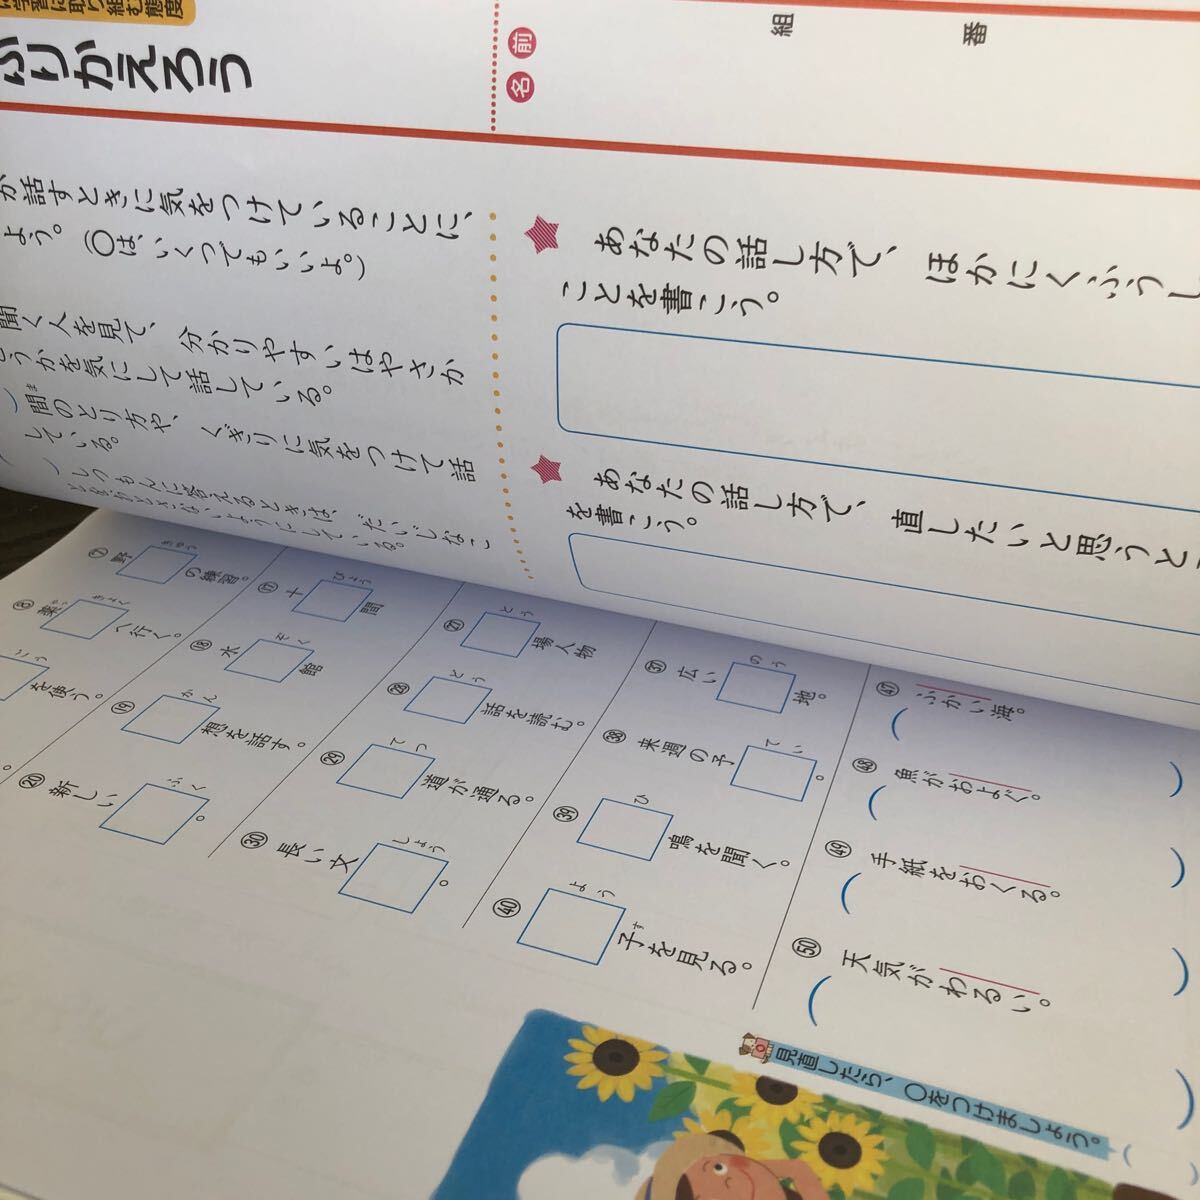 に学習に取り組む態度
ふりかえろう
名前
組
番
が話すときに気をつけていることに、
よう。(〇は、いくつでもいいよ。)
聞く人を見て、分かりやすいはやさか
どうかを気にして話している。
間のとり方や、くぎりに気をつけて話
ま
している。
しつもんに答えるときは、だいじなこ
あなたの話し方で、ほかにくふうし
ことを書こう。
あなたの話し方で、直したいと思うと
を書こう。
⑦ 野 きゅう の練習。
⑧ 薬 やっ きょく へ行く。
こう を使う。
⑰ 十 びょう 間
⑱ 水 ぞく 館
⑲ かん 想を話す。
⑳ 新しい ふく 。
㉗ とう 場人物
㉘ どう 話を読む。
㉙ てつ 道が通る。
㉚ 長い文 しょう 。
㊲ 広い のう 地。
㊳ 来週の予 てい 。
㊴ ひ 鳴を聞く。
㊵ よう 子 す を見る。
㊼ ふかい海。
( )
㊽ 魚がおよぐ。
( )
㊾ 手紙をおくる。
( )
㊿ 天気がわるい。
( )
見直したら、〇をつけましょう。